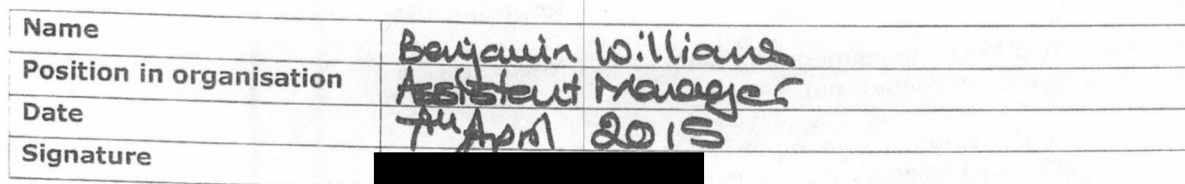 Name Benjamin Williams
Position in organisation Assistent Manager
Date 7th April 2015
Signature